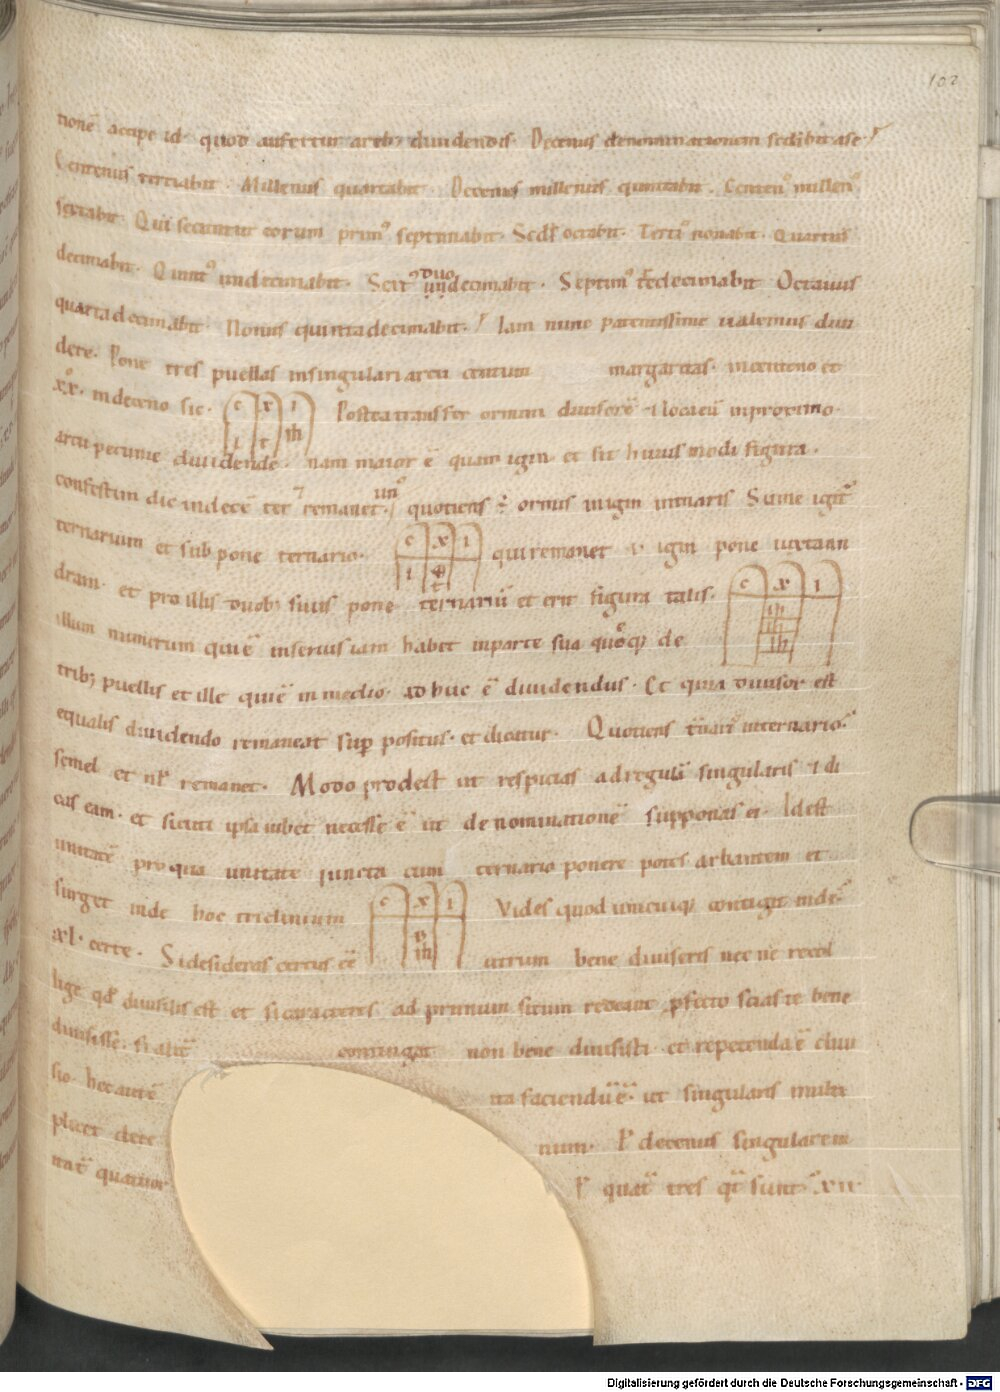 102
tionē accipe id. quod aufertur a reb; diuidendis. Decenus denominationem sedibit a se.
Centenus tertiabit. Millenus quartabit. Decenus millenus quintabit. Centen᾽ millen᾽
sextabit. Qui secuntur eorum prim᾽ septimabit. Scds octabit. Terti᾽ nonabit. Quartus
decimabit. Quint᾽ undecimabit. Sext᾽ duodecimabit. Septim᾽ t̄cdecimabit Octauus
quartadecimabit. Nonus quintadecimabit. Iam nunc parentissime ualemus diui
dere. Pone tres puellas insingulari arcu centum margaritas. incenteno et
xx. indeceno sic. c x i Postea transfer omnem diuisorē
arcu pecunie diuidende. nam maior ē quam igin et sit huius modi figura.
confestim dic indecē ter remanet un᾽ quotiens
ternarium et sub pone ternario. c x i qui remanet igin pone
dram. et pro illis duob; suis pone ternariū et erit figura talis. c x i
illum numerum qui ē inferius iam habet inparte sua de
trib; puellis et ille qui ē in medio. ad huc ē diuidendus. Et quia diuisor est
equalis diuidendo remaneat sup positus. et dicatur. Quotiens internario.
semel et nl remanet. Modo prodest ut respicias ad regulā singularis & di
cas eam. et sicuti ipsa iubet necesse ē ut denominationē supponas ei. Idest
unitatē pro qua unitate iuncta cum ternario ponere potes arbantem et
surget inde hoc triclinium c x i Vides quod unicuiq; contigit inde
xl. certe. Si desideras certus eē utrum bene diuiseris nec ne recol
lige qd diuisus est et si caracteres ad primum situm redeant pfecto scias te bene
diuisisse. si alit̄ contingat non bene diuisisti. et repetenda ē diui
sio. hec autē ita faciendū ē. ut singularis multi
plicet dece num. decenus singularem
quatuor quat̄ tres sunt xii
Digitalisierung gefördert durch die Deutsche Forschungsgemeinschaft - DFG